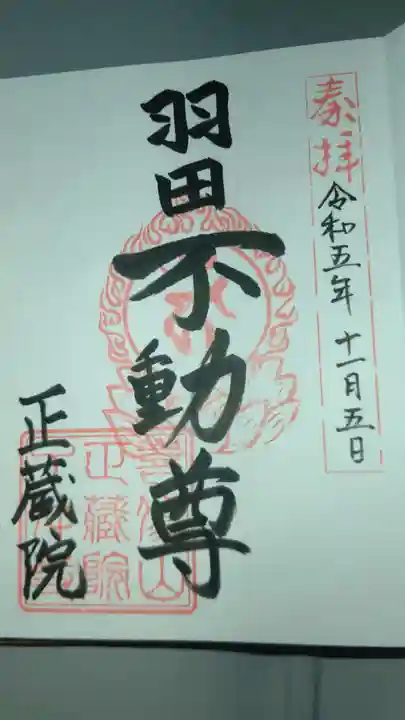 奉拝
令和五年十一月五日
羽田不動尊
正蔵院